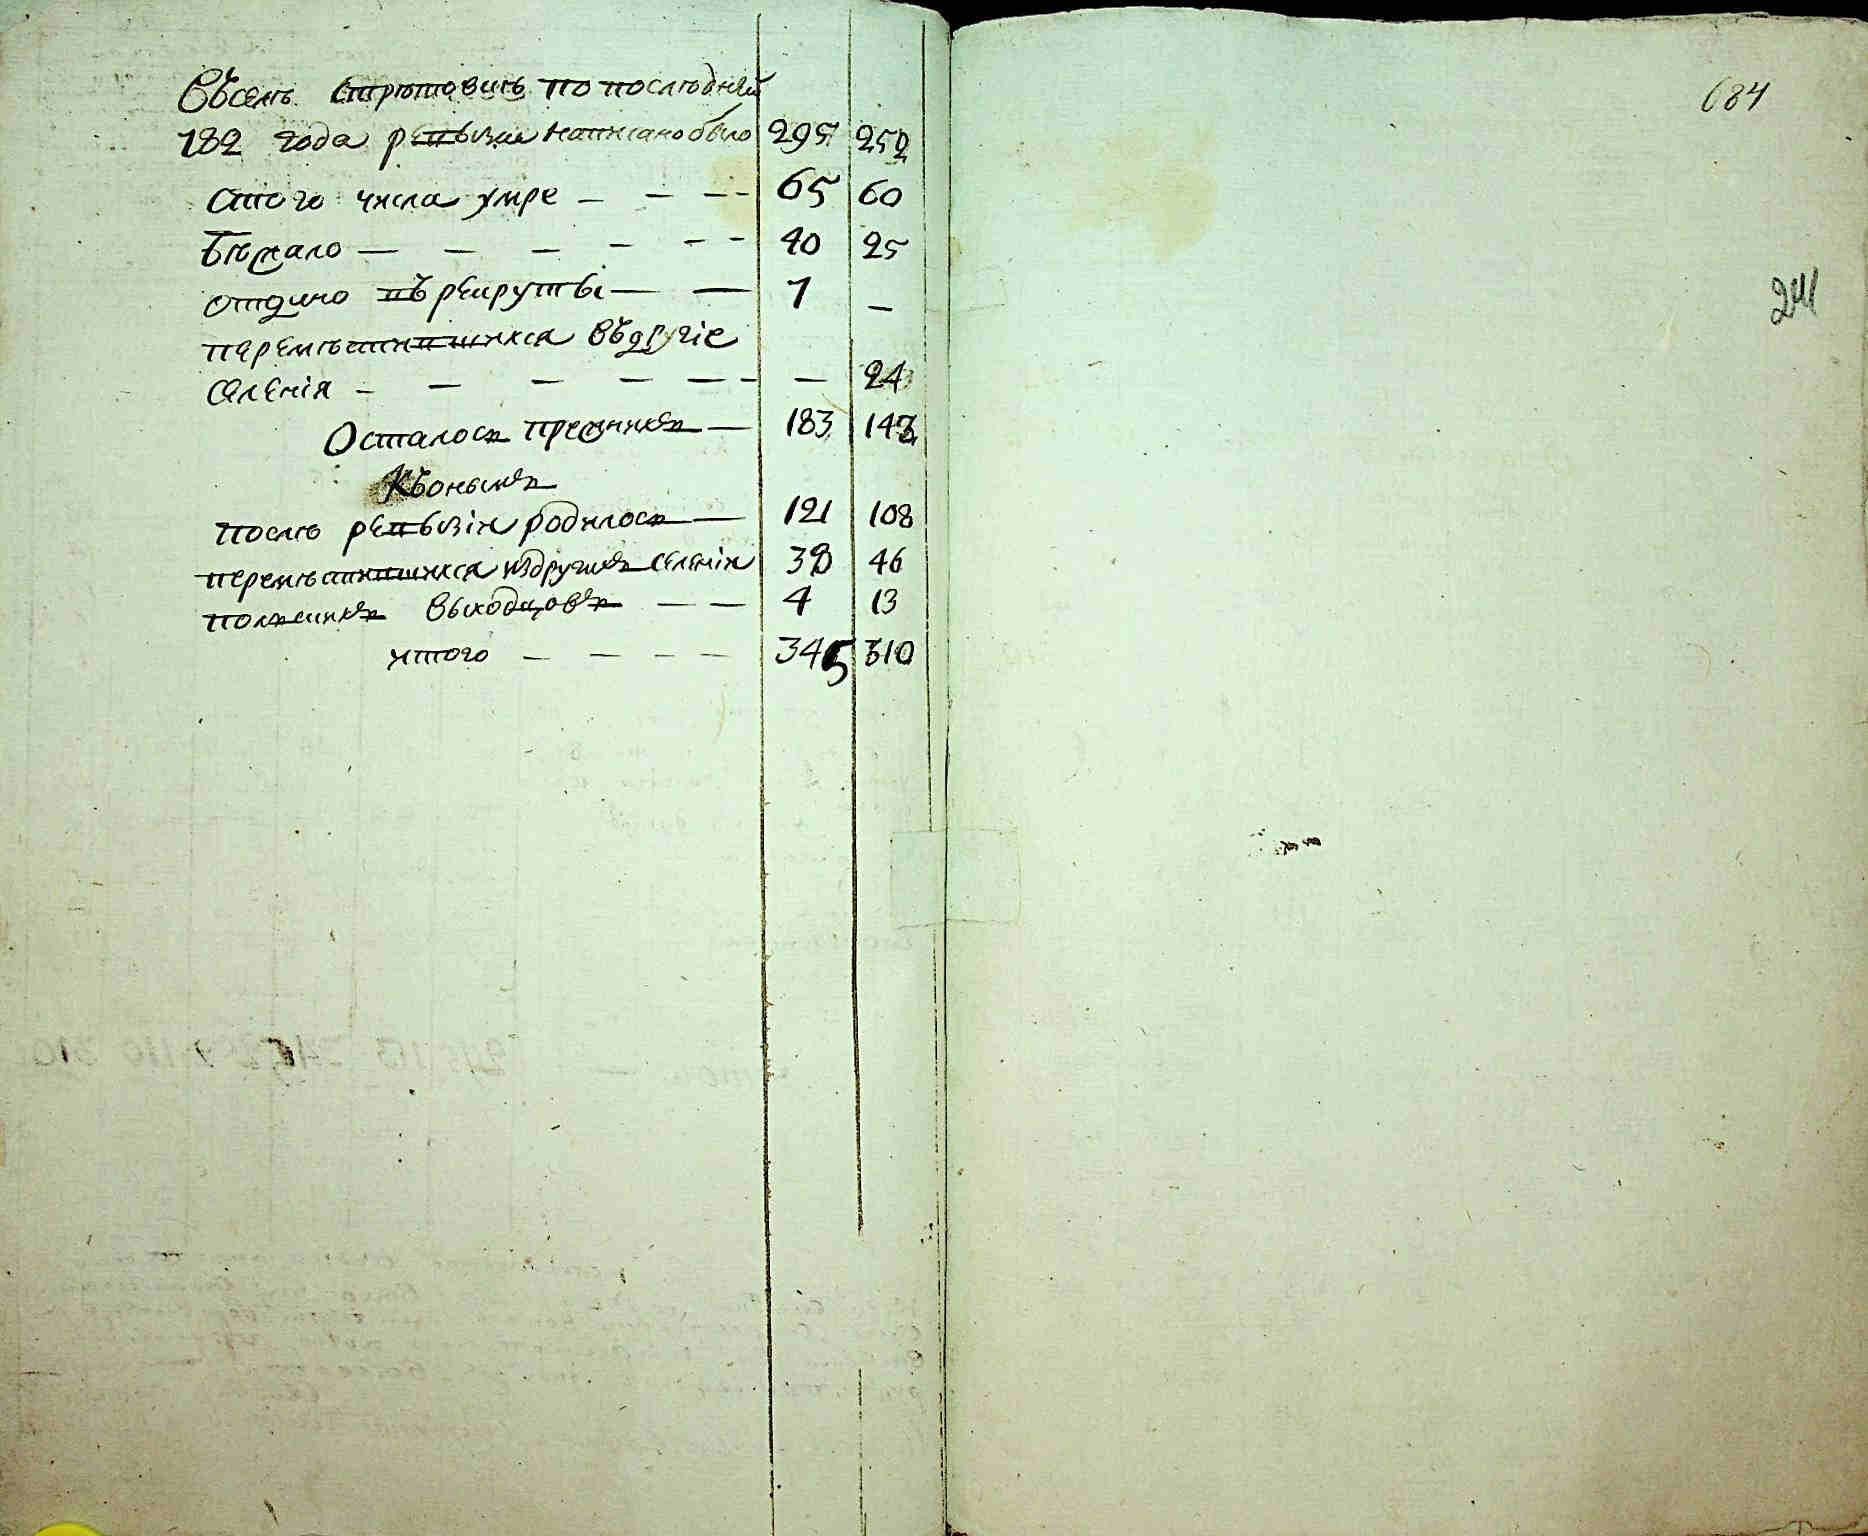 Въселѣ Стрютовкѣ по последней
782 года ревъвизии написано было 295 252
стого числа умре — — — — 65 60
Бѣжало — — — — — — 40 25
отдано въ рекруты — — 1 —
перемѣстившихся въдругіе
селенія — — — — — — — 24
Осталось прежнихъ — 183 143
Къонымъ
послѣ ревъвизіи родилось — 121 108
перемѣстившихся издругихъ селеній 38 46
польскихъ выходцовъ — — 4 13
итого — — — — 345 310
684
241